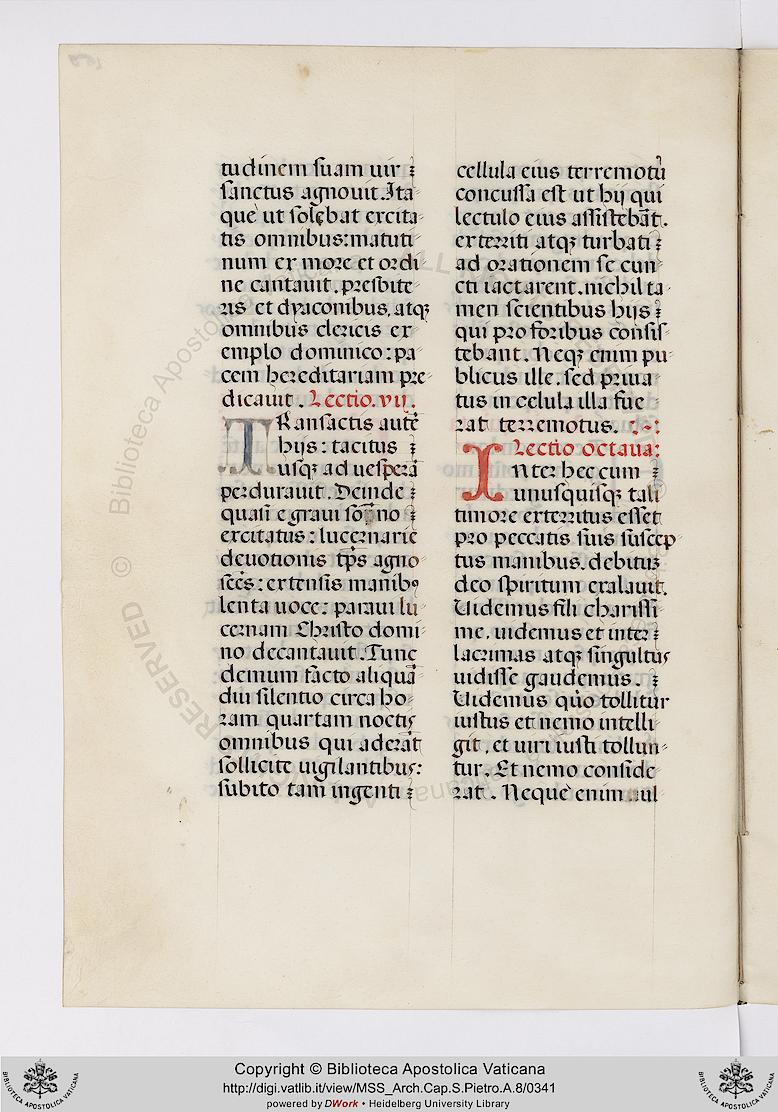 tudinem suam uir
sanctus agnouit. Ita
que ut solebat excita
tis omnibus: matuti
num ex more et ordi
ne cantauit. presbite
ris et dyaconibus, atqꝫ
omnibus clericis ex
emplo dominico: pa
cem hereditariam pre
dicauit. Lectio. vii.
TRansactis autē
hijs: tacitus
usqꝫ ad uesperā
perdurauit. Deinde
quasi e graui somno
excitatus: lucernarie
deuotionis tp̄s agno
scēs: extensis manibꝰ
lenta uoce: paraui lu
cernam Christo domi
no decantauit. Tunc
demum facto aliquā
diu silentio circa ho
ram quartam noctis
omnibus qui aderāt
sollicite uigilantibus:
subito tam ingenti
cellula eius terremotu
concussa est ut hij qui
lectulo eius assistebāt.
exterriti atqꝫ turbati
ad orationem se cun
cti iactarent. nichil ta
men scientibus hijs
qui pro foribus consis
tebant. Neqꝫ enim pu
blicus ille. sed priua
tus in celula illa fue
rat terremotus.
Lectio octaua:
Inter hec cum
unusquisqꝫ tali
timore exterritus esset
pro peccatis suis suscep
tus manibus. debitūꝫ
deo spiritum exalauit.
Uidemus fili charissi
me, uidemus et inter
lacrimas atqꝫ singultus
uidisse gaudemus.
Uidemus quō tollitur
iustus et nemo intelli
git, et uiri iusti tollun
tur. Et nemo conside
rat. Neque enim nul
© Biblioteca Apostolica Vaticana
RESERVED
Copyright © Biblioteca Apostolica Vaticana
http://digi.vatlib.it/view/MSS_Arch.Cap.S.Pietro.A.8/0341
powered by DWork • Heidelberg University Library
BIBLIOTECA APOSTOLICA VATICANA
BIBLIOTECA APOSTOLICA VATICANA